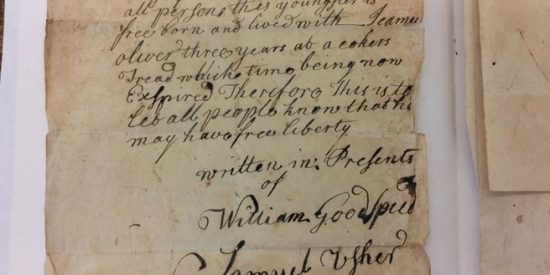 all persons this youngster is
free born and lived with Seamu
oliver three years at a cokers
Tread which time being now
Exspired Therefore This is to
Let all people know that he
may have free liberty
written in: Presents
of
William Goodspeed
Samuel Usher